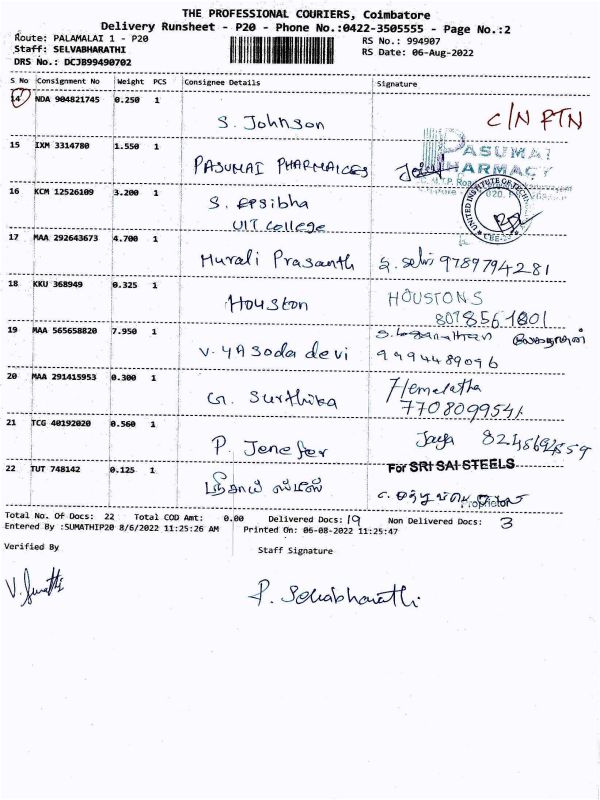 THE PROFESSIONAL COURIERS, Coimbatore
Delivery Runsheet - P20 - Phone No.:0422-3505555 - Page No.:2
Route: PALAMALAI 1 - P20
RS No.: 994907
Staff: SELVABHARATHI
RS Date: 06-Aug-2022
DRS No.: DCJB99490702
S No Consignment No Weight PCS Consignee Details Signature
14 NDA 904821745 0.250 1
S. Johnson C/N RTN
15 IXM 3314780 1.550 1
PASUMAI
PHARMACY
PASUMAI PHARMAICES
16 KCM 12526109 3.200 1
S. Epsibha
UIT college
UNITED INSTITUTE OF TECH
17 MAA 292643673 4.700 1
Murali Prasanth S. Selvi 9789794281
18 KKU 368949 0.325 1
Houston HOUSTON S
8078561801
19 MAA 565658820 7.950 1
V. YASoda devi 9994489096
20 MAA 291415953 0.300 1
G. Surthika Hemalatha
7708099541
21 TCG 40192020 0.560 1
P. Jenefer Jaya
22 TUT 748142 0.125 1
For SRI SAI STEELS
Proprietor
Total No. Of Docs: 22 Total COD Amt: 0.00 Delivered Docs: 19 Non Delivered Docs: 3
Entered By :SUMATHIP20 8/6/2022 11:25:26 AM Printed On: 06-08-2022 11:25:47
Verified By Staff Signature
V. Sumathi P. Selvabharathi